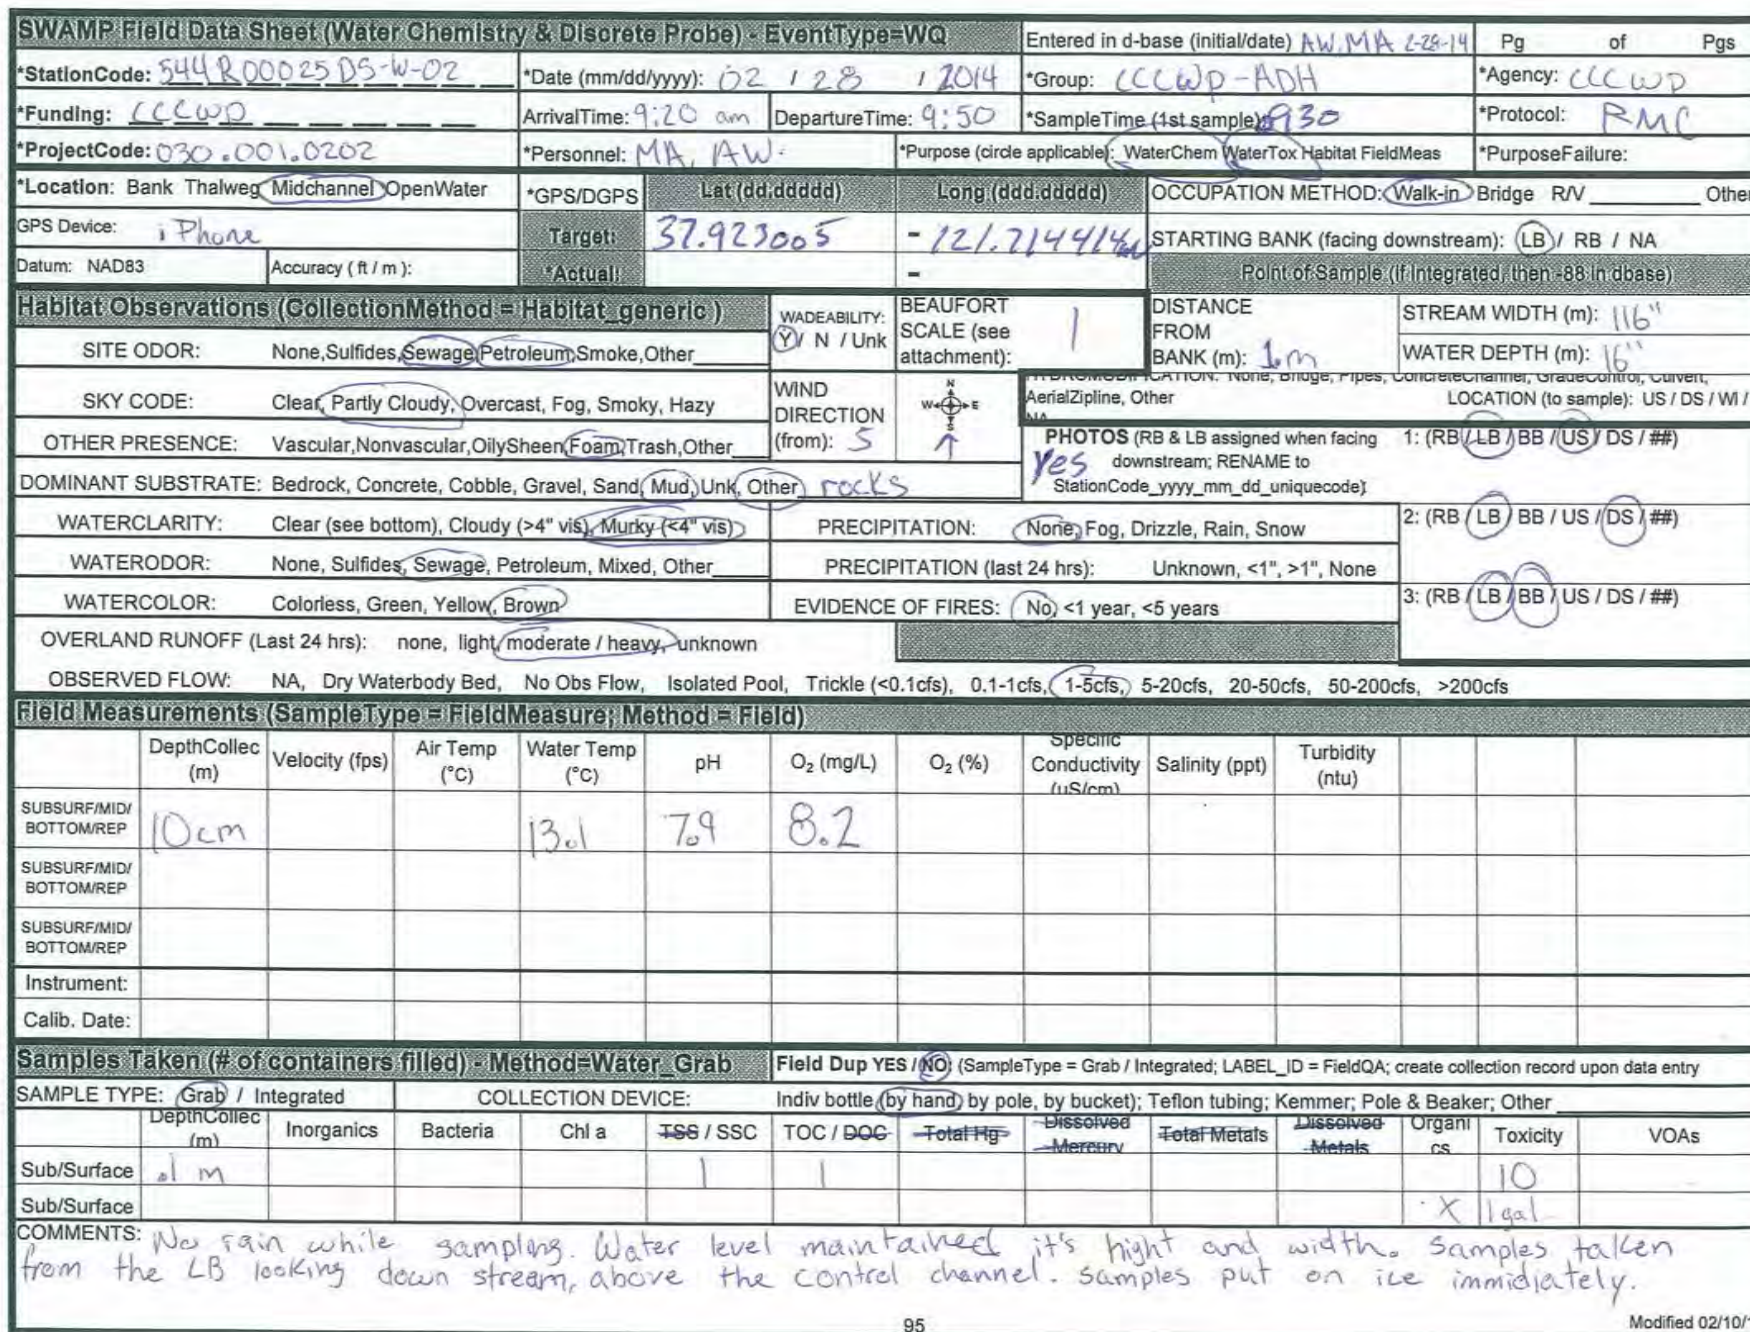 SWAMP Field Data Sheet (Water Chemistry & Discrete Probe) - EventType=WQ
Entered in d-base (initial/date) AW, MA 2-28-14
Pg of Pgs
*StationCode: 544R00025DS-W-02
*Date (mm/dd/yyyy): 02 / 28 / 2014
*Group: CCCWP-ADH
*Agency: CCCWP
*Funding: CCCWP
ArrivalTime: 9:20 am
DepartureTime: 9:50
*SampleTime (1st sample): 0930
*Protocol: RMC
*ProjectCode: 030.001.0202
*Personnel: MA, AW.
*Purpose (circle applicable): WaterChem WaterTox Habitat FieldMeas
*PurposeFailure:
*Location: Bank Thalweg Midchannel OpenWater
*GPS/DGPS
Lat (dd.ddddd)
Long (ddd.ddddd)
OCCUPATION METHOD: Walk-in Bridge R/V Other
GPS Device: iPhone
Target: 37.923005
-121.714414
STARTING BANK (facing downstream): LB / RB / NA
Datum: NAD83
Accuracy ( ft / m ):
*Actual:
-
Point of Sample (if Integrated, then -88 in dbase)
Habitat Observations (CollectionMethod = Habitat_generic )
WADEABILITY:
Y / N / Unk
BEAUFORT
SCALE (see
attachment):
1
DISTANCE
FROM
BANK (m): 1m
STREAM WIDTH (m): 116"
WATER DEPTH (m): 16"
SITE ODOR: None,Sulfides,Sewage,Petroleum,Smoke,Other
SKY CODE: Clear, Partly Cloudy, Overcast, Fog, Smoky, Hazy
WIND
DIRECTION
(from): S
N
W E
S
HYDROMODIFICATION: None, Bridge, Pipes, ConcreteChannel, GradeControl, Culvert,
AerialZipline, Other
LOCATION (to sample): US / DS / WI /
NA
OTHER PRESENCE: Vascular,Nonvascular,OilySheen,Foam,Trash,Other
PHOTOS (RB & LB assigned when facing
downstream; RENAME to
StationCode_yyyy_mm_dd_uniquecode)
Yes
1: (RB / LB / BB / US / DS / ##)
DOMINANT SUBSTRATE: Bedrock, Concrete, Cobble, Gravel, Sand, Mud, Unk, Other rocks
WATERCLARITY: Clear (see bottom), Cloudy (>4" vis), Murky (<4" vis)
PRECIPITATION: None, Fog, Drizzle, Rain, Snow
2: (RB / LB / BB / US / DS / ##)
WATERODOR: None, Sulfides, Sewage, Petroleum, Mixed, Other
PRECIPITATION (last 24 hrs): Unknown, <1", >1", None
WATERCOLOR: Colorless, Green, Yellow, Brown
EVIDENCE OF FIRES: No, <1 year, <5 years
3: (RB / LB / BB / US / DS / ##)
OVERLAND RUNOFF (Last 24 hrs): none, light, moderate / heavy, unknown
OBSERVED FLOW: NA, Dry Waterbody Bed, No Obs Flow, Isolated Pool, Trickle (<0.1cfs), 0.1-1cfs, 1-5cfs, 5-20cfs, 20-50cfs, 50-200cfs, >200cfs
Field Measurements (SampleType = FieldMeasure; Method = Field)
DepthCollec (m)
Velocity (fps)
Air Temp (°C)
Water Temp (°C)
pH
O₂ (mg/L)
O₂ (%)
Specific Conductivity (uS/cm)
Salinity (ppt)
Turbidity (ntu)
SUBSURF/MID/
BOTTOM/REP
10cm 13.1 7.9 8.2
SUBSURF/MID/
BOTTOM/REP
SUBSURF/MID/
BOTTOM/REP
Instrument:
Calib. Date:
Samples Taken (# of containers filled) - Method=Water_Grab
Field Dup YES / NO: (SampleType = Grab / Integrated; LABEL_ID = FieldQA; create collection record upon data entry
SAMPLE TYPE: Grab / Integrated
COLLECTION DEVICE:
Indiv bottle (by hand, by pole, by bucket); Teflon tubing; Kemmer; Pole & Beaker; Other
DepthCollec (m)
Inorganics
Bacteria
Chl a
TSS / SSC
TOC / DOC
Total Hg
Dissolved Mercury
Total Metals
Dissolved Metals
Organics
Toxicity
VOAs
Sub/Surface .1 m 1 1 10
Sub/Surface X 1gal
COMMENTS: No rain while sampling. Water level maintained it's hight and width. Samples taken
from the LB looking down stream, above the control channel. samples put on ice immidiately.
95
Modified 02/10/1